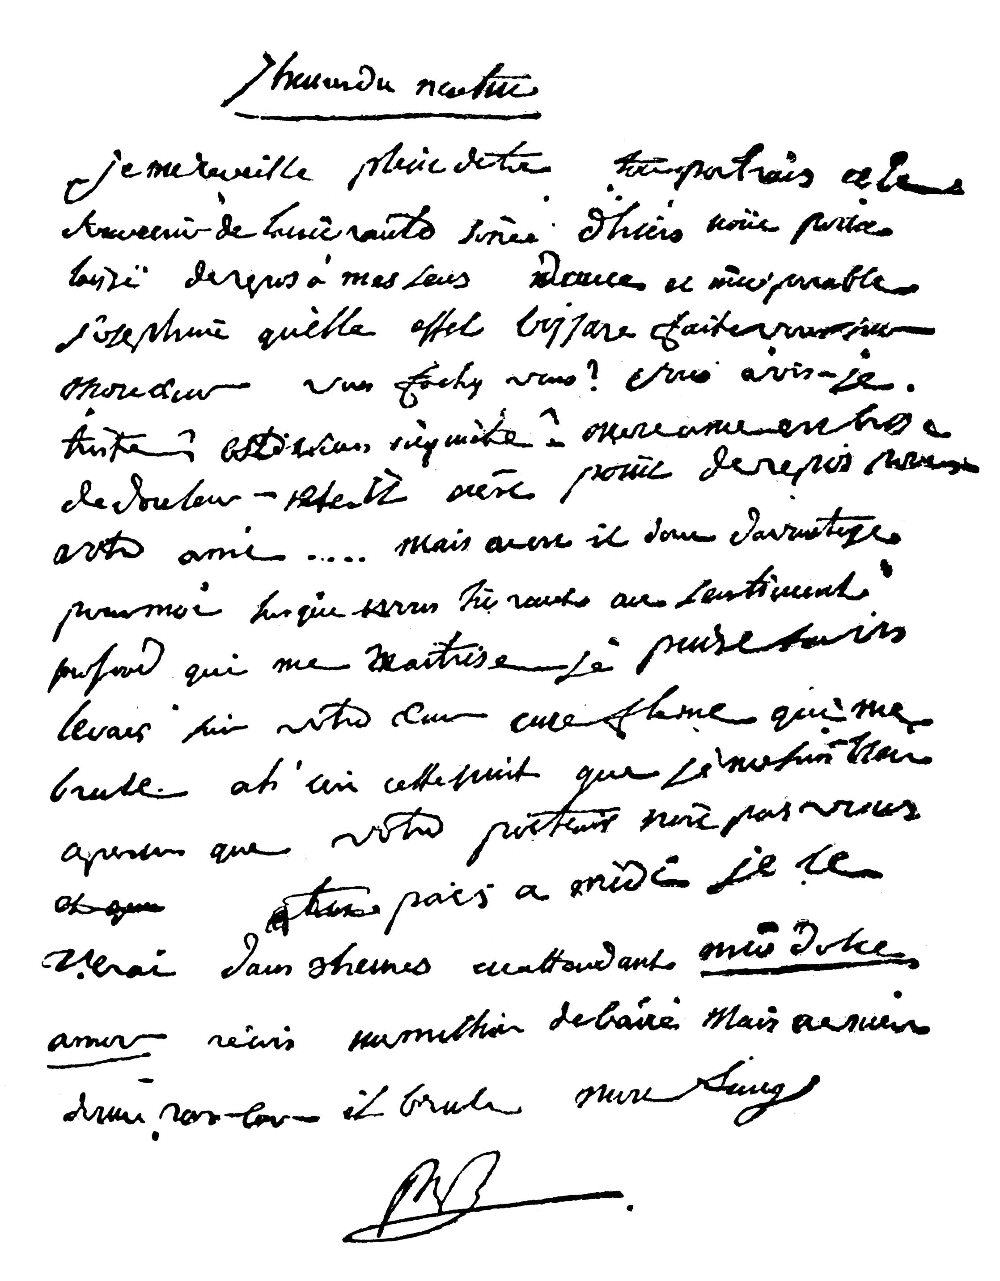 7 heures du matin
je me reveille plein de toi ton portrait et le
souvenir de l'enivrante soirée d'hiers n'ont point
laissé de repos à mes sens douce et incomparable
Josephine quelle effet bizzare faite vous sur
mon cœur vous fachez vous? vous vois-je
triste êtes vous inquiète mon ame est brisé
de douleur et il n'est point de repos pour
votre ami ..... mais en est il donc davantage
pour moi lorsque vous livrant au sentiment
profond qui me maitrise je puise sur vos
levres sur votre cœur une flame qui me
brule ah! c'est cette nuit que je me suis bien
aperçu que votre portrait n'est pas vous
tu pars a midi je te
verai dans 3 heures en attendant mio dolce
amor reçois un millier de baisé mais ne m'en
donne pas car il brule mon sang
NB